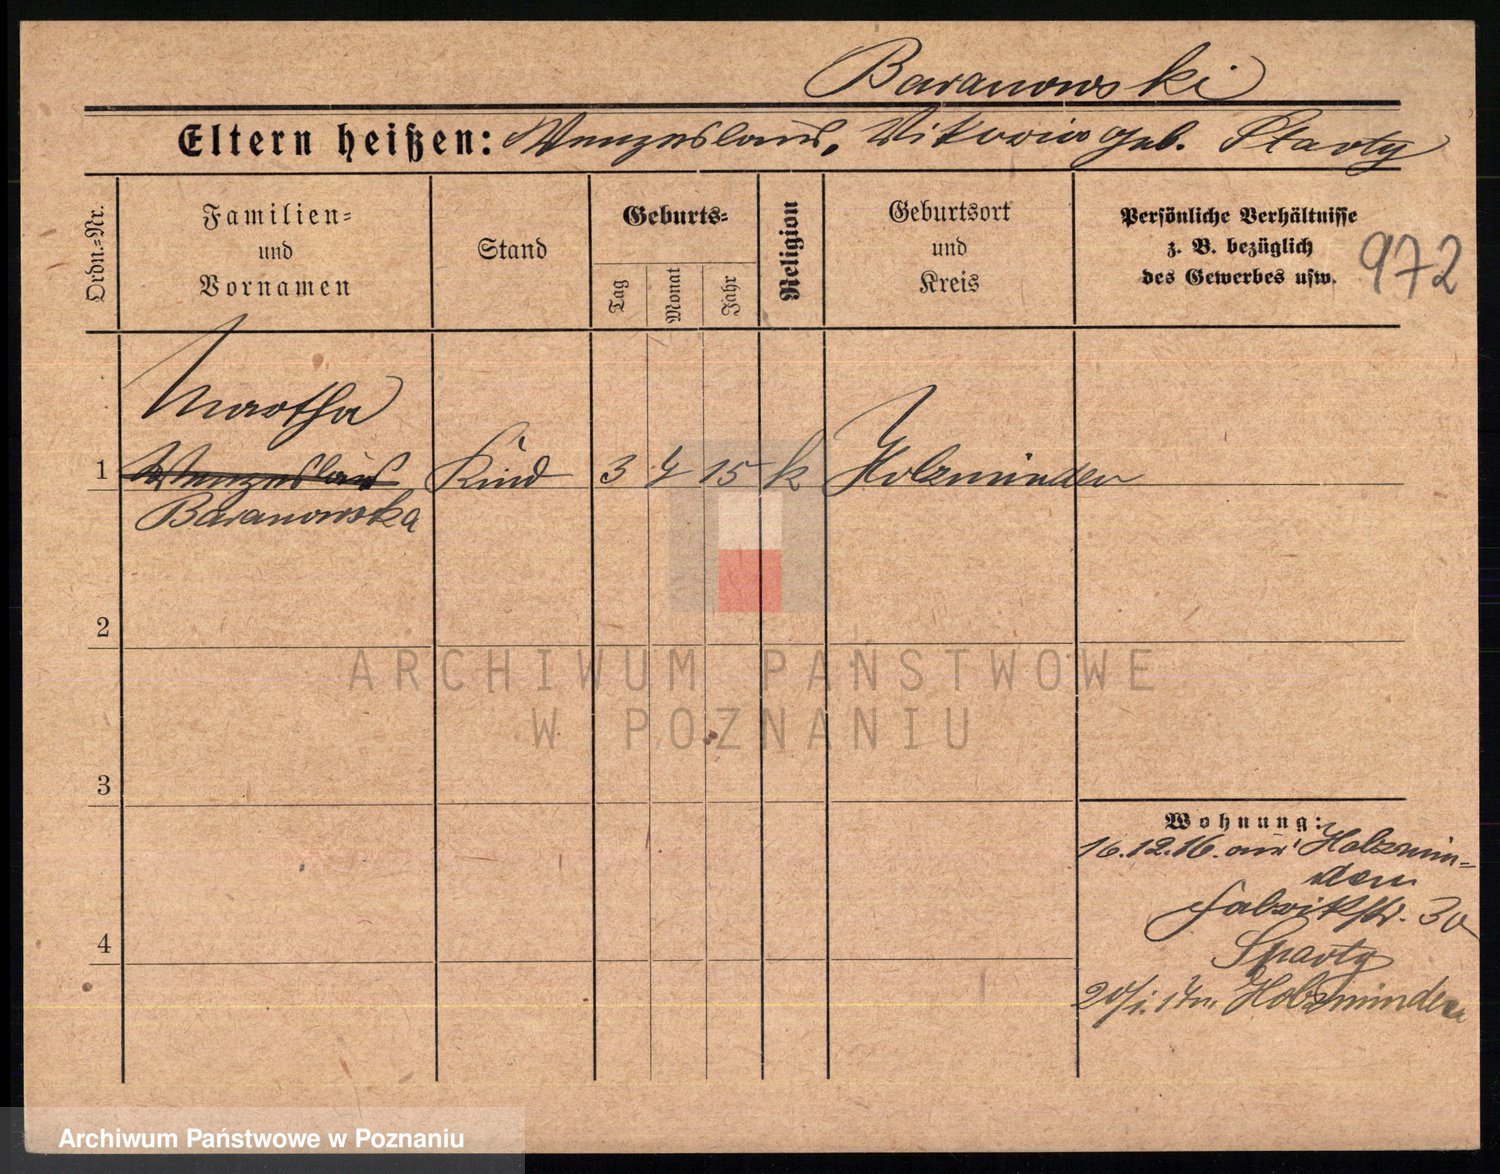 Baranowski
Eltern heißen: Wenzeslaus, Viktoria geb. Starty
Ordn.-Nr.
Familien-
und
Vornamen
Stand
Geburts-
Tag
Monat
Jahr
Religion
Geburtsort
und
Kreis
Persönliche Verhältnisse
z. B. bezüglich
des Gewerbes usw.
972
Martha
1 Wenzeslaus Kind 3 4 15 k Holzminden
Baranowska
2
ARCHIWUM PAŃSTWOWE
W POZNANIU
3
Wohnung:
16.12.16. aus Holzmin-
den
Fabrikstr. 30
Sparty
4
20/1. 17 n. Holzminden
Archiwum Państwowe w Poznaniu